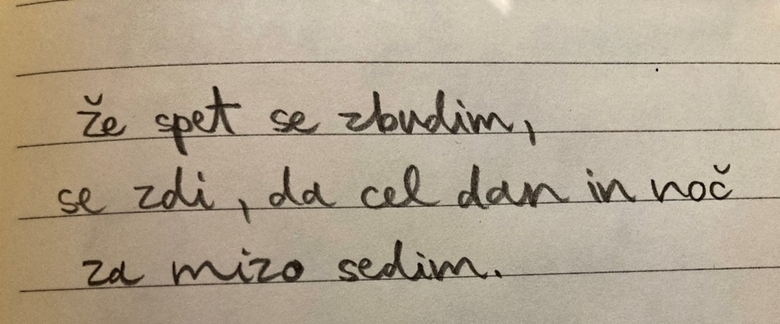 že spet se zbudim,
se zdi, da cel dan in noč
za mizo sedim.